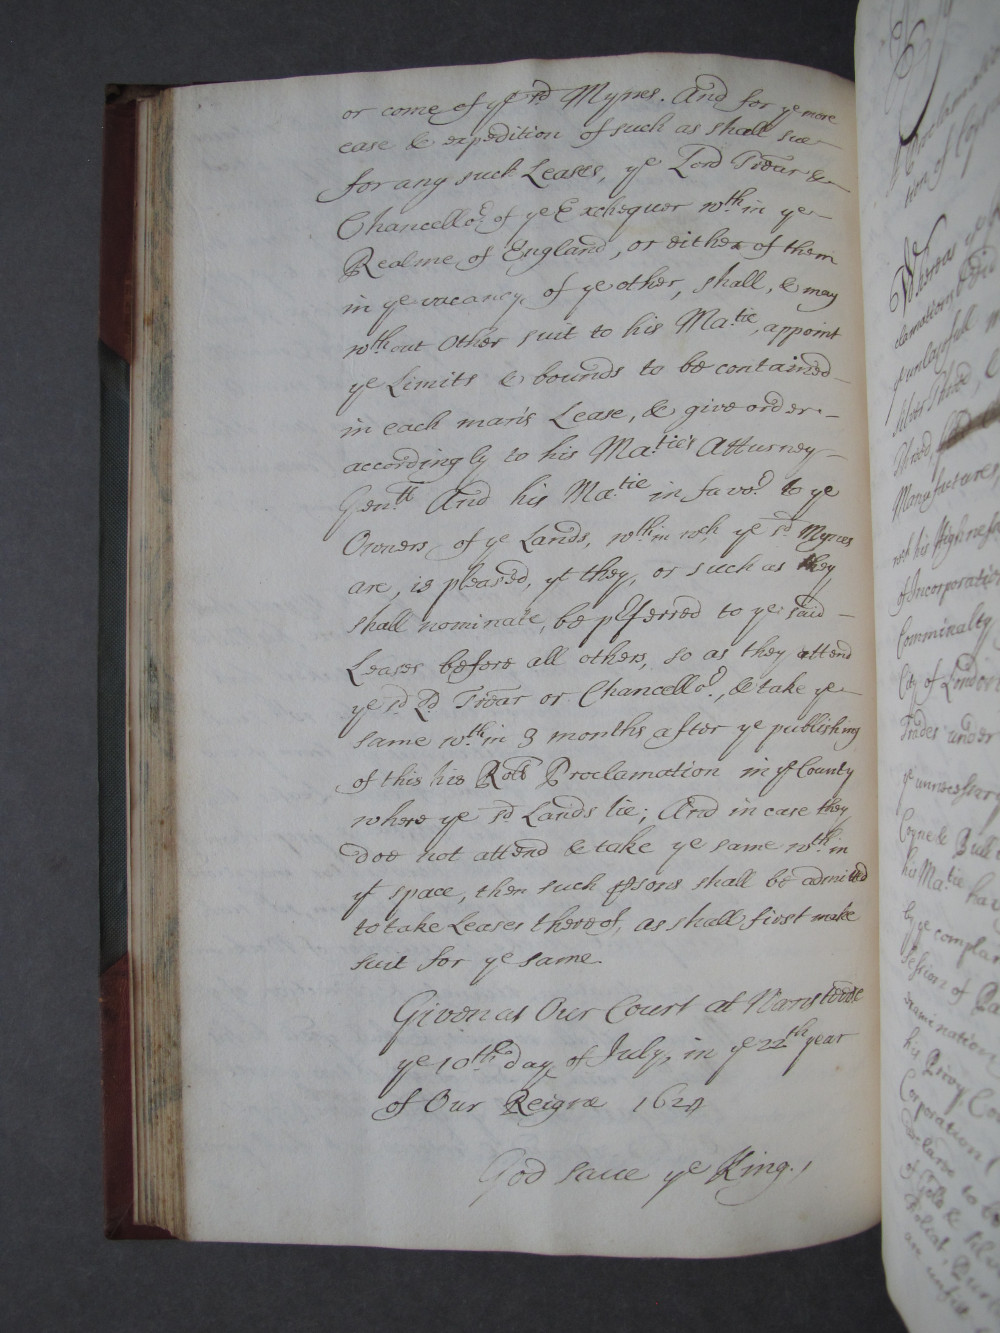 or come of ye sd Mynes. And for ye more
ease & expedition of such as shall sue
for any such Leases, ye Lord Trear &
Chancellor. of ye Exchequer wth.in ye
Realme of England, or either of them
in ye vacancy of ye other, shall, & may
wth.out Other suit to his Ma.tie, appoint
ye Limits & bounds to be contained
in each man's Lease, & give order
accordingly to his Ma.tie's Atturney
Gen.ll And his Ma.tie in favor. to ye
Owners of ye Lands, wth.in wch ye sd. Mynes
are, is pleased, yt they, or such as they
shall nominate, be pferred to ye said
Leases before all others, so as they attend
ye sd Ld Trear or Chancellor., & take ye
same wth.in 3 months after ye publishing
of this his Roll Proclamation in yt County
where ye sd Lands lie; And in case they
doe not attend & take ye same wth.in
yt space, then such psons shall be admitted
to take Leases thereof, as shall first make
suit for ye same.
Given at Our Court at
ye 10th. day of July, in ye 22th year
of Our Reigne 1624
God save ye King.
Proclamation
tion of
Whereas ye
clamation
yt unlawful
silver thred,
thred,
Manufactures,
wch his Highness
of Incorporation
Comminalty
City of London
Trades under
ye unnecessary
Coyne & Bull
his Ma.tie hav
by ye complai
Session of Pa
his Privy Co
Corporation
declare to
of Gold & silv